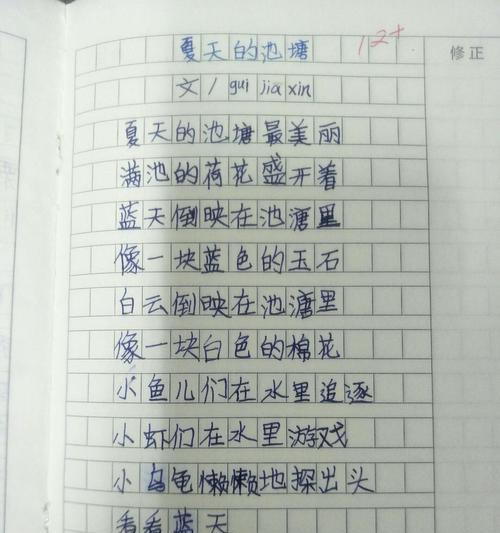 夏天的池塘
12+
修正
文/gui jia xin
夏天的池塘最美丽
满池的荷花盛开着
蓝天倒映在池溏里
像一块蓝色的玉石
白云倒映在池溏里
像一块白色的棉花
小鱼儿们在水里追逐
小虾们在水里游戏
小乌龟懒懒地探出头
看看蓝天